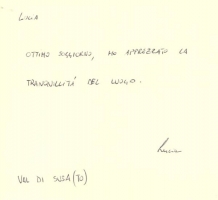 LUCIA
OTTIMO SOGGIORNO, HO APPREZZATO LA
TRANQUILLITÁ DEL LUOGO.
Lucia
VAL DI SUSA (TO)